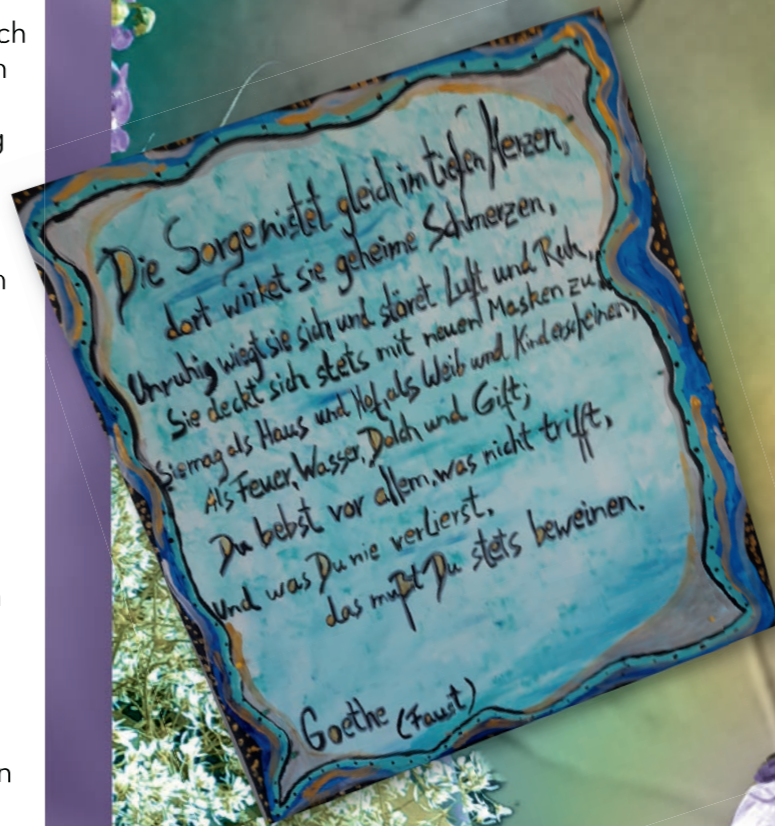 ch
n
g
n
n
Die Sorge nistet gleich im tiefen Herzen,
dort wirket sie geheime Schmerzen,
Unruhig wiegt sie sich und störet Luft und Ruh,
Sie deckt sich stets mit neuen Masken zu,
Sie mag als Haus und Hof, als Weib und Kind erscheinen,
Als Feuer, Wasser, Dolch und Gift;
Du bebst vor allem, was nicht trifft,
Und was Du nie verlierst,
das mußt Du stets beweinen.
Goethe (Faust)